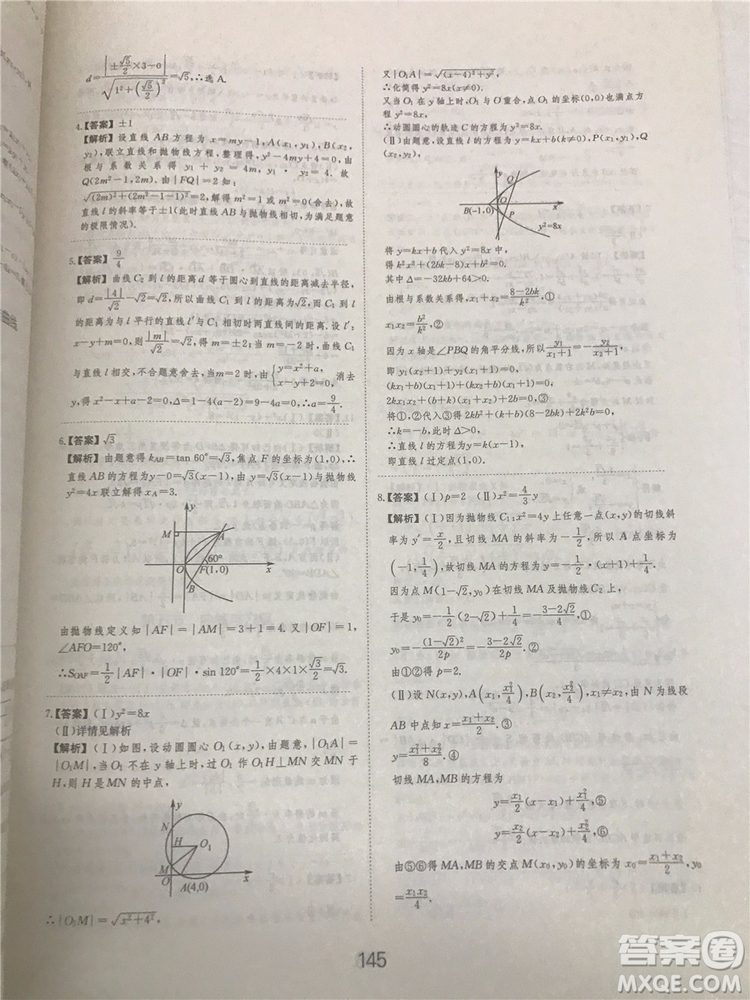 d=|±√5/2×3-0|/√(1²+(√5/2)²)=√5,∴选A.
4.【答案】±1
【解析】设直线AB方程为x=my-1,A(x₁,y₁),B(x₂,
y₂),联立直线和抛物线方程,整理得,y²-4my+4=0,由
根与系数关系得y₁+y₂=4m,y₁·y₂=4.故
Q(2m²-1,2m).由|FQ|=2知:
√((2m)²+(2m²-1-1)²)=2,解得m²=1或m²=0(舍去),故
直线l的斜率等于±1(此时直线AB与抛物线相切,为满足题意
的极限情况).
5.【答案】9/4
【解析】所以曲线C₂到l的距离d等于圆心到直线的距离减去半径,
即d=|4|/√2-√2=√2,所以曲线C₁到l的距离为√2,而C₁到l
的距离为与l平行的直线l′与C₁相切时两直线间的距离.设l′:
x-y+m=0,则|m|/√2=√2,解得m=±2;当m=-2时,直线
与直线l相交,不合题意舍去;当m=2时,由{y=x²+a, x-y+2=0,消去
y,得x²-x+a-2=0,Δ=1-4(a-2)=9-4a=0,∴a=9/4.
6.【答案】√3
【解析】由题意得k_AB=tan 60°=√3,焦点F的坐标为(1,0),∴
直线AB的方程为y-0=√3(x-1),即y=√3(x-1),与抛物线
y²=4x联立解得x_A=3.
y
M
A
60°
O
F(1,0)
x
B
由抛物线定义知|AF|=|AM|=3+1=4.又|OF|=1,
∠AFO=120°,
∴S_OAF=1/2|AF|·|OF|·sin 120°=1/2×4×1×√3/2=√3.
7.【答案】(Ⅰ)y²=8x
(Ⅱ)详情见解析
【解析】(Ⅰ)如图,设动圆圆心O₁(x,y),由题意,|O₁A|=
|O₁M|,当O₁不在y轴上时,过O₁作O₁H⊥MN交MN于
H,则H是MN的中点,
y
N
H
O₁
M
O
A(4,0)
x
∴|O₁M|=√(x²+4²),
又|O₁A|=√((x-4)²+y²),
∴化简得y²=8x(x≠0).
又当O₁在y轴上时,O₁与O重合,点O₁的坐标(0,0)也满足方
程y²=8x,
∴动圆圆心的轨迹C的方程为y²=8x.
(Ⅱ)由题意,设直线l的方程为y=kx+b(k≠0),P(x₁,y₁),Q
(x₂,y₂).
y
Q
O
x
B(-1,0)
P
y²=8x
将y=kx+b代入y²=8x中,
得k²x²+(2bk-8)x+b²=0.
其中Δ=-32kb+64>0.
由根与系数关系得,x₁+x₂=(8-2bk)/k²,①
x₁x₂=b²/k²,②
因为x轴是∠PBQ的角平分线,所以y₁/(x₁+1)=-y₂/(x₂+1),
即y₁(x₂+1)+y₂(x₁+1)=0,
(kx₁+b)(x₂+1)+(kx₂+b)(x₁+1)=0,
2kx₁x₂+(b+k)(x₁+x₂)+2b=0,③
将①,②代入③得2kb²+(k+b)(8-2bk)+2k²b=0,
∴k=-b,此时Δ>0,
∴直线l的方程为y=k(x-1),
即直线l过定点(1,0).
8.【答案】(Ⅰ)p=2 (Ⅱ)x²=4/3y
【解析】(Ⅰ)因为抛物线C₁:x²=4y上任意一点(x,y)的切线斜
率为y′=x/2,且切线MA的斜率为-1/2,所以A点坐标为
(-1,1/4),故切线MA的方程为y=-1/2·(x+1)+1/4.
因为点M(1-√2,y₀)在切线MA及抛物线C₂上,
于是y₀=-1/2(2-√2)+1/4=-(3-2√2)/4,①
y₀=-(1-√2)²/2p=-(3-2√2)/2p,②
由①②得p=2.
(Ⅱ)设N(x,y),A(x₁,x₁²/4),B(x₂,x₂²/4),x₁≠x₂,由N为线段
AB中点知x=(x₁+x₂)/2,③
y=(x₁²+x₂²)/8.④
切线MA,MB的方程为
y=x₁/2(x-x₁)+x₁²/4,⑤
y=x₂/2(x-x₂)+x₂²/4,⑥
由⑤⑥得MA,MB的交点M(x₀,y₀)的坐标为x₀=(x₁+x₂)/2,y₀
=x₁x₂/4.
145
答案圈
MXQE.COM